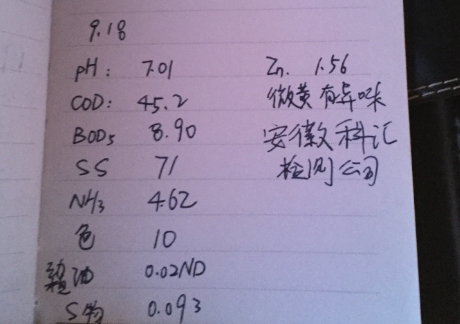 9.18
pH: 7.01
COD: 45.2
BOD5 8.90
SS 71
NH3 4.62
色 10
油 0.02ND
S物 0.093
Zn. 1.56
微黄有异味
安徽科汇
检测公司